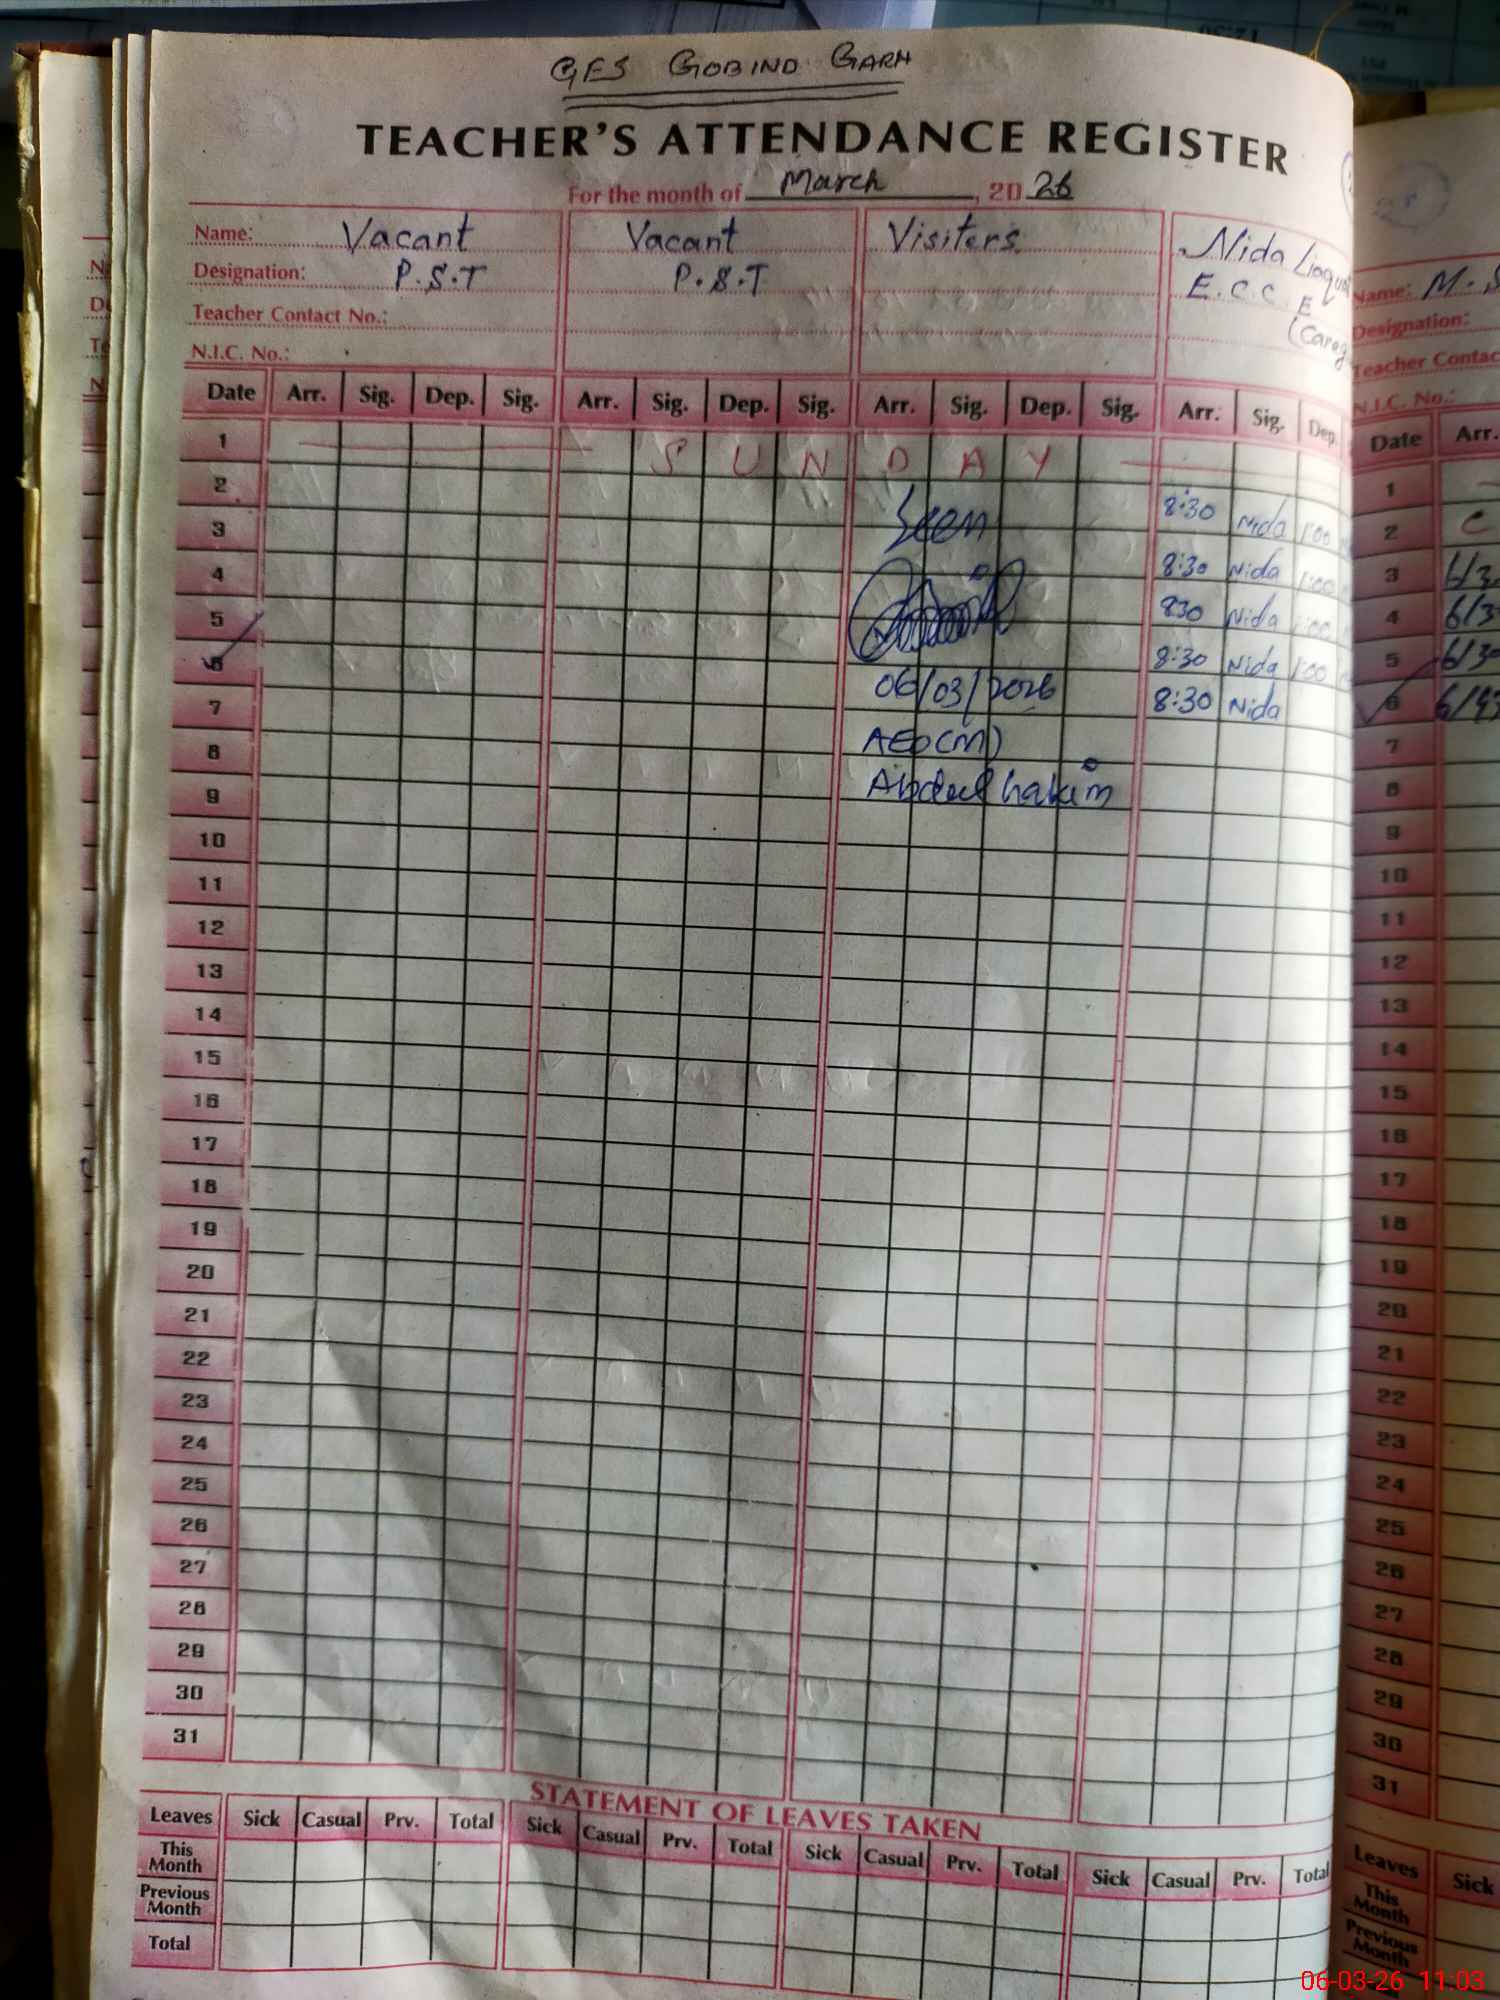 GES GOBIND GARH
TEACHER'S ATTENDANCE REGISTER
For the month of March, 2026
Name: Vacant Vacant Visiters Nida Liaquat
Designation: P.S.T P.S.T E.C.C.E
Teacher Contact No.:
N.I.C. No.:
Date Arr. Sig. Dep. Sig. Arr. Sig. Dep. Sig. Arr. Sig. Dep. Sig. Arr. Sig. Dep.
1 SUNDAY
2 Seen 8:30 Nida 1:00
3 8:30 Nida 1:00
4 830 Nida 1:00
5 8:30 Nida 1:00
6 06/03/2026 8:30 Nida
7 AEO(M)
8 Abdul hakim
9
10
11
12
13
14
15
16
17
18
19
20
21
22
23
24
25
26
27
28
29
30
31
STATEMENT OF LEAVES TAKEN
Leaves Sick Casual Prv. Total Sick Casual Prv. Total Sick Casual Prv. Total Sick Casual Prv. Total
This Month
Previous Month
Total
Name: M.
Designation:
Teacher Contac
N.I.C. No.:
Date Arr.
1
2
3
4
5
6
7
8
9
10
11
12
13
14
15
16
17
18
19
20
21
22
23
24
25
26
27
28
29
30
31
Leaves Sick
This Month
Previous Month
06-03-26 11:03